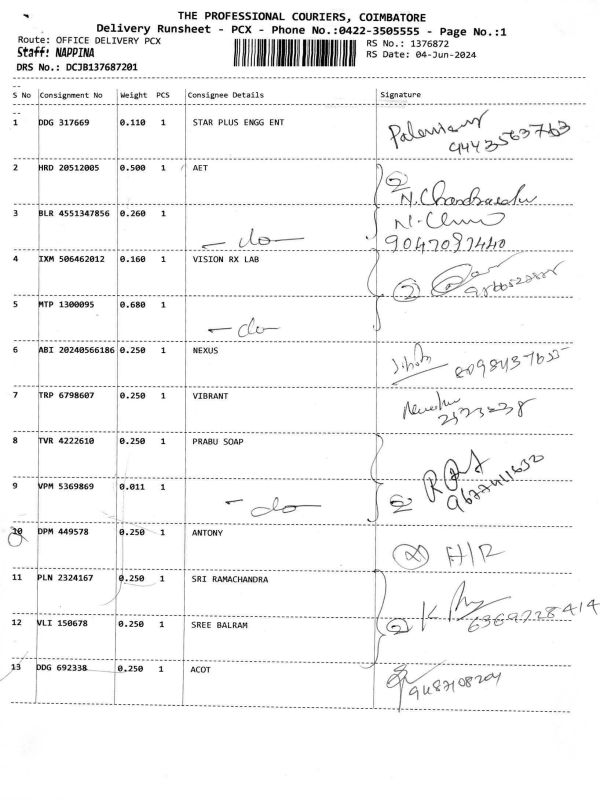 THE PROFESSIONAL COURIERS, COIMBATORE
Delivery Runsheet - PCX - Phone No.:0422-3505555 - Page No.:1
Route: OFFICE DELIVERY PCX
RS No.: 1376872
Staff: NAPPINA
RS Date: 04-Jun-2024
DRS No.: DCJB137687201
--
S No Consignment No Weight PCS Consignee Details Signature
--
1 DDG 317669 0.110 1 STAR PLUS ENGG ENT
9443563763
2 HRD 20512005 0.500 1 AET
2
N. Chandrasekar
3 BLR 4551347856 0.260 1
- do -
9047087440
4 IXM 506462012 0.160 1 VISION RX LAB
2
5 MTP 1300095 0.680 1
- do -
6 ABI 20240566186 0.250 1 NEXUS
7 TRP 6798607 0.250 1 VIBRANT
8 TVR 4222610 0.250 1 PRABU SOAP
9 VPM 5369869 0.011 1
- do -
2
10 DPM 449578 0.250 1 ANTONY
H/R
11 PLN 2324167 0.250 1 SRI RAMACHANDRA
2
6369728414
12 VLI 150678 0.250 1 SREE BALRAM
13 DDG 692338 0.250 1 ACOT
9487108204